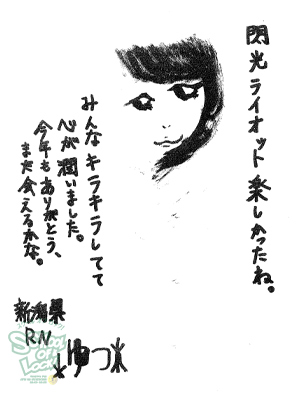 閃光ライオット楽しかったね。
みんなキラキラしてて
心が潤いました。
今年もありがとう、
また会えるかな。
新潟県
RN
ゆつ
SCHOOL OF LOCK!